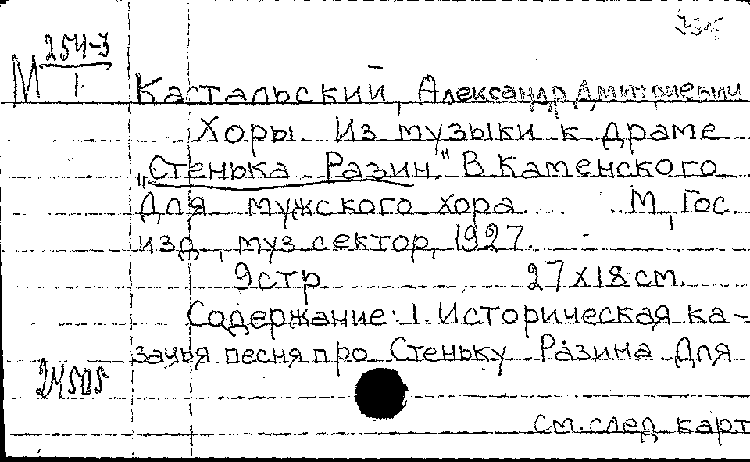 М 254-3
1
Кастальский, Александр Дмитриевич
Хоры. Из музыки к драме
„Стенька Разин." В. Каменского
для мужского хора М, Гос
изд, муз. сектор, 1927.
9 стр 27х18 см.
Содержание: 1. Историческая ка-
зачья песня про Стеньку Разина Для
24505
см. след. карт